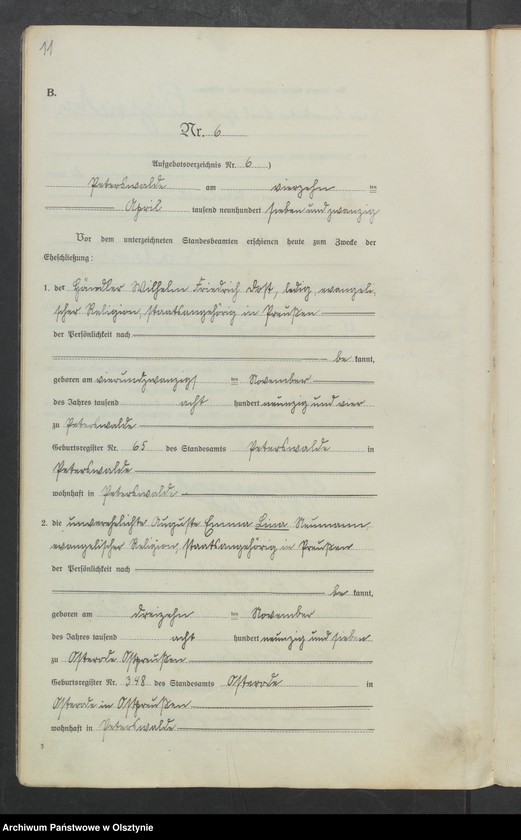 11
B.
Nr. 6
Aufgebotsverzeichnis Nr. 6)
Peterswalde am vierzehn ten
April tausend neunhundert sieben und zwanzig
Vor dem unterzeichneten Standesbeamten erschienen heute zum Zwecke der
Eheschließung:
1. der Händler Wilhelm Friedrich Dost, ledig, evangeli-
scher Religion, staatsangehörig in Preußen
der Persönlichkeit nach
be kannt,
geboren am vierundzwanzigs ten November
des Jahres tausend acht hundert neunzig und vier
zu Peterswalde
Geburtsregister Nr. 65 des Standesamts Peterswalde in
Peterswalde
wohnhaft in Peterswalde
2. die unverehelichte Auguste Emma Lina Neumann,
evangelischer Religion, staatsangehörig in Preußen
der Persönlichkeit nach
be kannt,
geboren am dreizehn ten November
des Jahres tausend acht hundert neunzig und sieben
zu Osterode Ostpreußen
Geburtsregister Nr. 348 des Standesamts Osterode in
Osterode in Ostpreußen
wohnhaft in Peterswalde
Archiwum Państwowe w Olsztynie